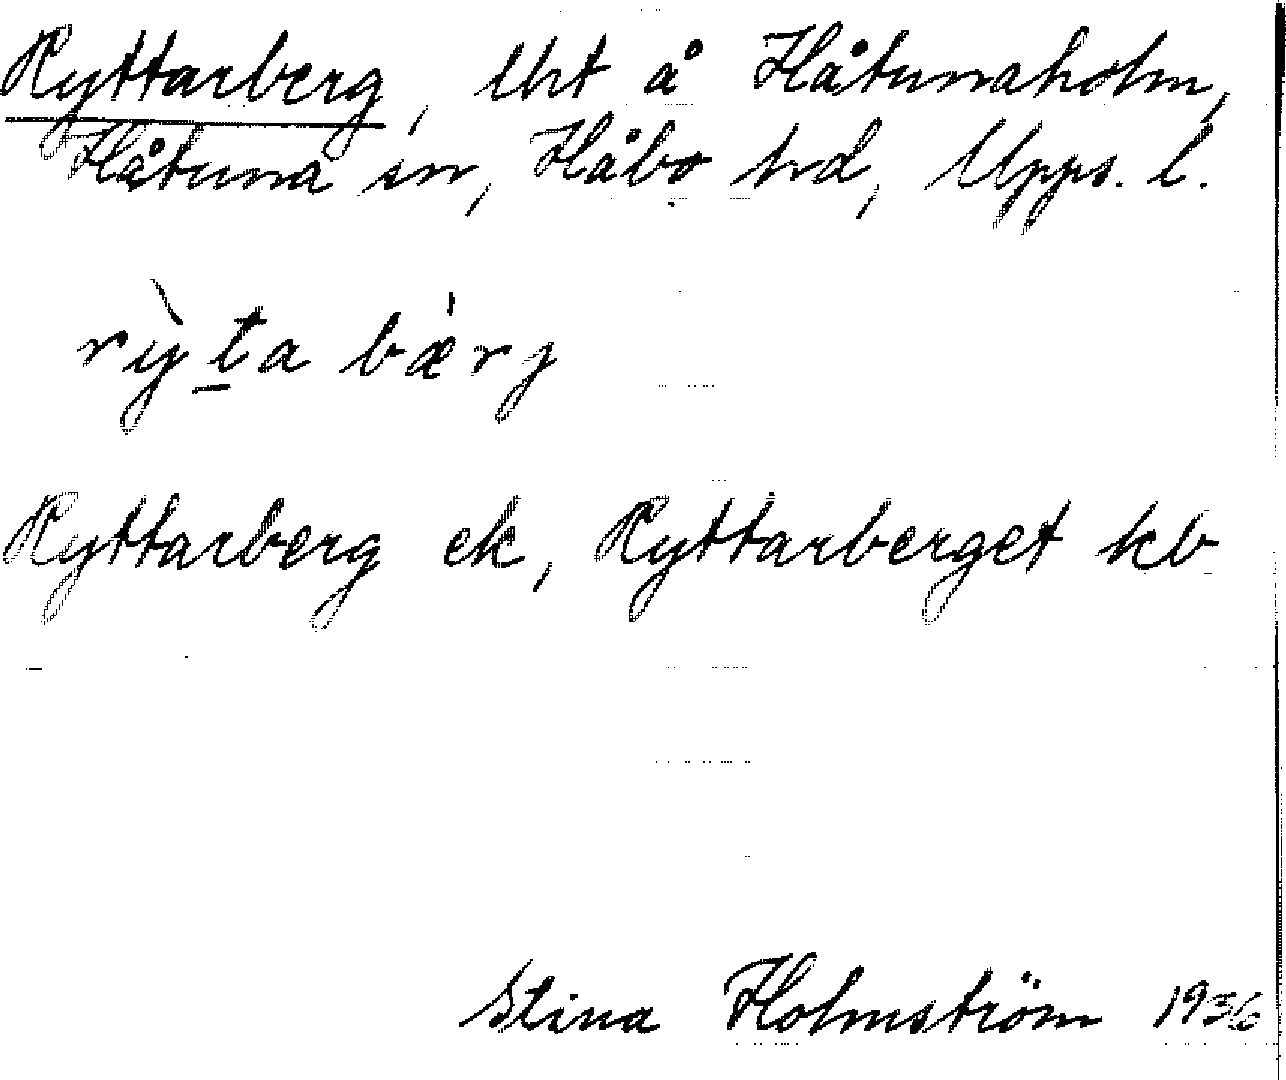 Ryttarberg, lht å Håtunaholm,
Håtuna sn, Håbo hd, Upps. l.
rỳta bǽrj
Ryttarberg ek, Ryttarberget kb
Stina Holmström 1936